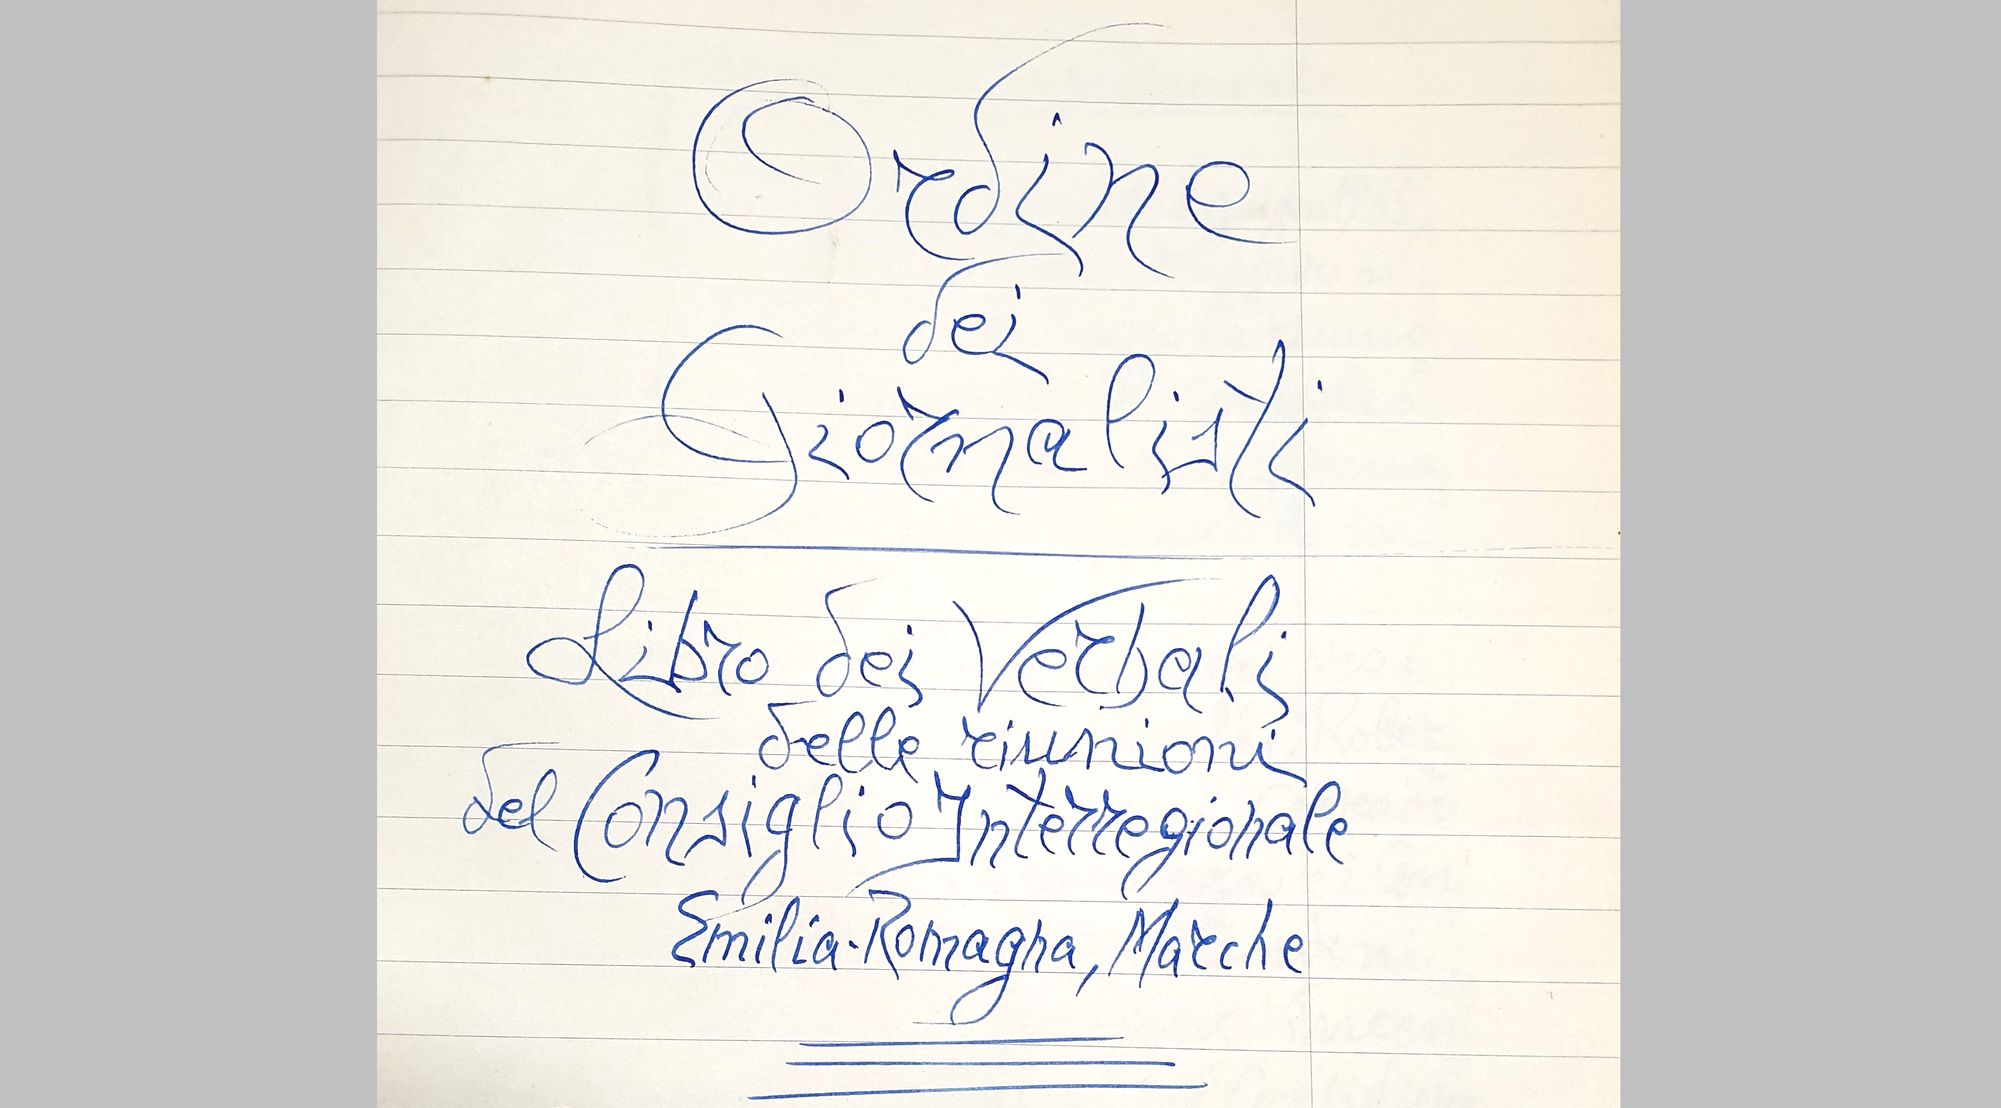 Ordine
dei
Giornalisti
Libro dei Verbali
delle riunioni
del Consiglio Interregionale
Emilia-Romagna, Marche